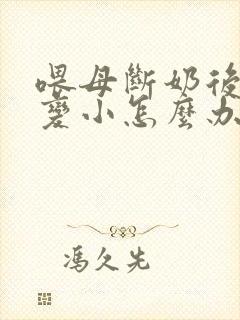 喂母斷奶後
變小怎麼办
馮久先